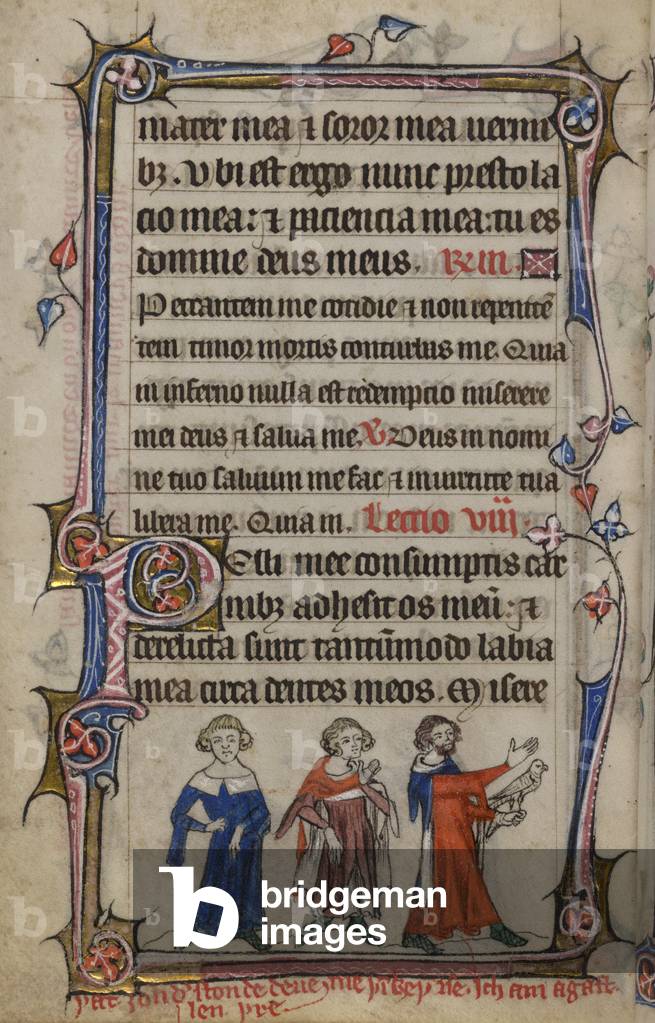 mater mea ⁊ soror mea uermi
bꝫ. Vbi est ergo nunc prestola
cio mea: ⁊ paciencia mea: tu es
domine deus meus.
Peccantem me cotidie ⁊ non repenitē
tem timor mortis conturbat me. Quia
in inferno nulla est redempcio miserere
mei deus ⁊ salua me. V Deus in nomi
ne tuo saluum me fac ⁊ in uirtute tua
libera me. Quia in. Lectio viij.
Pelli mee consumptis car
nibꝫ adhesit os meū: ⁊
derelicta sunt tantūmodo labia
mea circa dentes meos. Misere
b bridgeman
images